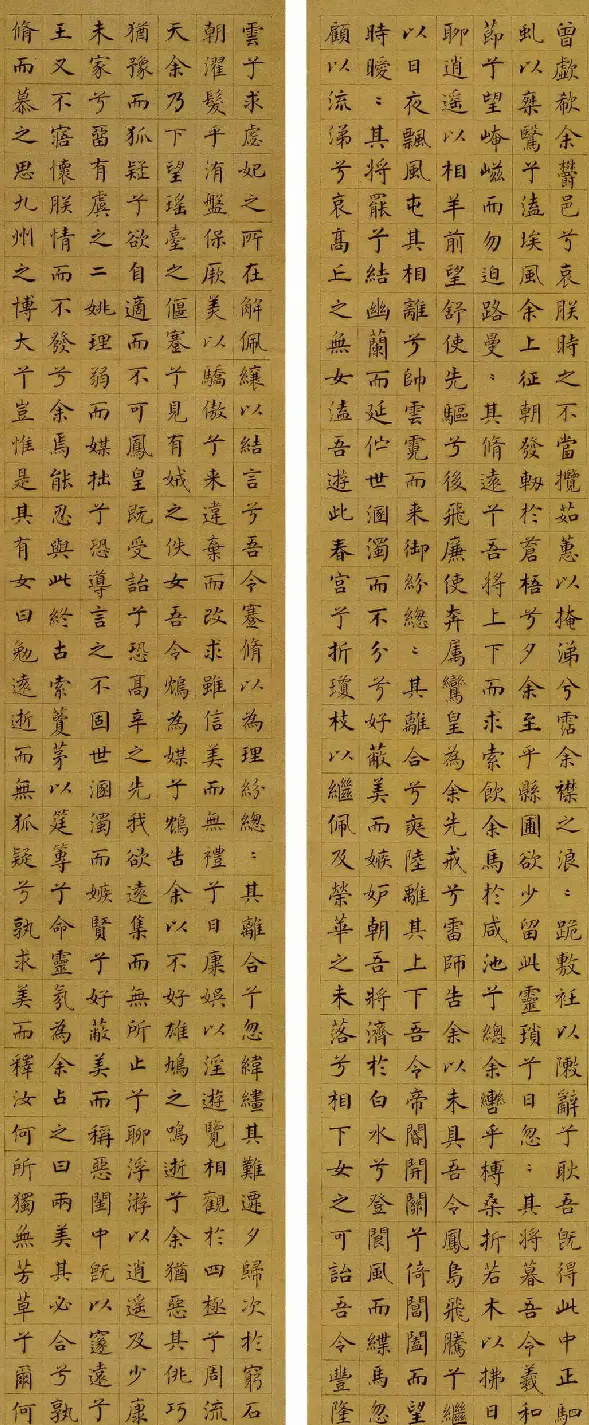 曾歔欷余鬱邑兮哀朕時之不當攬茹蕙以掩涕兮霑余襟之浪〻跪敷衽以敶辭兮耿吾既得此中正駟
虬以椉鷖兮溘埃風余上征朝發軔於蒼梧兮夕余至乎縣圃欲少留此靈瑣兮日忽〻其將暮吾令羲和
節兮望崦嵫而勿迫路曼〻其脩遠兮吾將上下而求索飲余馬於咸池兮總余轡乎榑桑折若木以拂日
聊逍遥以相羊前望舒使先驅兮後飛廉使奔属鸞皇為余先戒兮雷師告余以未具吾令鳳鳥飛騰兮繼
以日夜飄風屯其相離兮帥雲霓而来御紛總〻其離合兮爽陸離其上下吾令帝閽開關兮倚閶闔而望
時曖〻其將罷兮結幽蘭而延佇世溷濁而不分兮好蔽美而嫉妒朝吾將濟於白水兮登閬風而緤馬忽
顧以流涕兮哀髙丘之無女溘吾遊此春宮兮折瓊枝以繼佩及榮華之未落兮相下女之可詒吾令豐隆
雲兮求虙妃之所在解佩纕以結言兮吾令蹇脩以為理紛總〻其離合兮忽緯繣其難遷夕歸次於窮石
朝濯髮乎洧盤保厥美以驕傲兮日康娛以淫遊雖信美而無禮兮来違棄而改求覽相觀於四極兮周流
天余乃下望瑤臺之偃蹇兮見有娀之佚女吾令鴆為媒兮鴆告余以不好雄鳩之鳴逝兮余猶惡其佻巧
猶豫而狐疑兮欲自適而不可鳳皇既受詒兮恐髙辛之先我欲遠集而無所止兮聊浮游以逍遥及少康
未家兮留有虞之二姚理弱而媒拙兮恐導言之不固世溷濁而嫉賢兮好蔽美而稱惡閨中既以邃遠兮
王又不寤懷朕情而不發兮余焉能忍與此終古索藑茅以筳篿兮命靈氛為余占之曰兩美其必合兮孰
脩而慕之思九州之博大兮豈惟是其有女曰勉遠逝而無狐疑兮孰求美而釋汝何所獨無芳草兮爾何